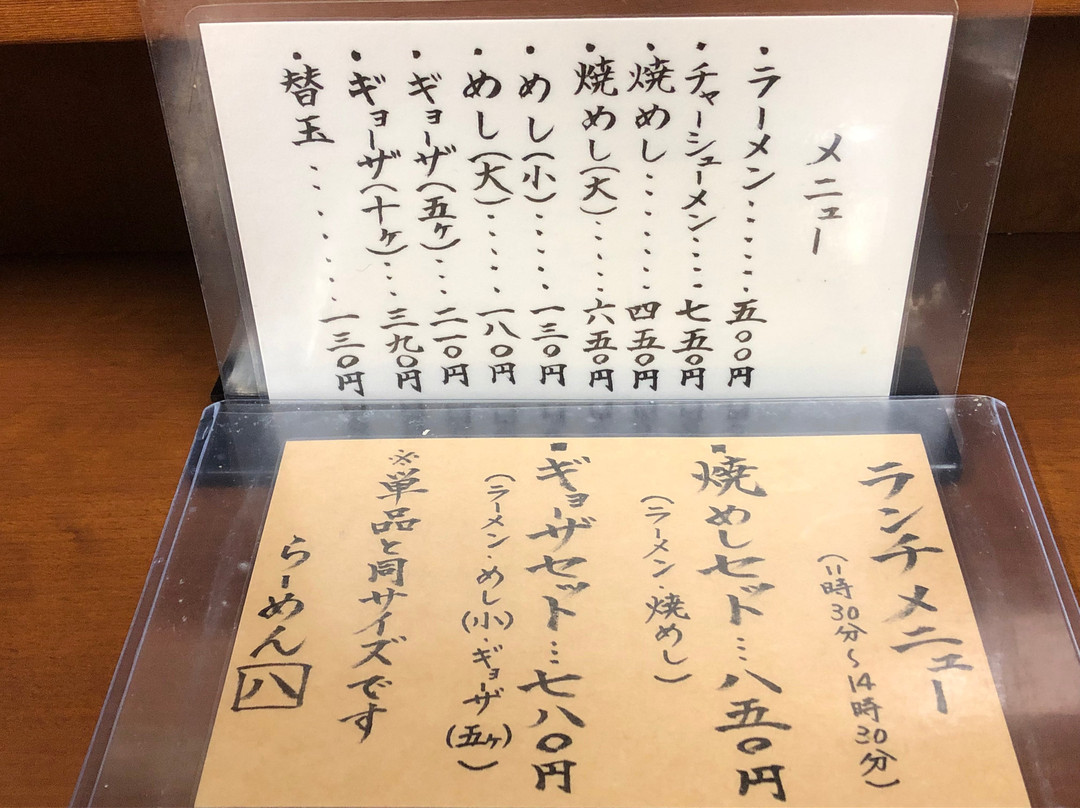 メニュー
・ラーメン・・・・・五〇〇円
・チャーシューメン・・・・七五〇円
・焼めし・・・・・・四五〇円
・焼めし(大)・・・・六五〇円
・めし(小)・・・・・一三〇円
・めし(大)・・・・・一八〇円
・ギョーザ(五ヶ)・・・二一〇円
・ギョーザ(十ヶ)・・・三九〇円
・替玉・・・・・・一三〇円
ランチメニュー
(11時30分~14時30分)
・焼めしセット…八五〇円
(ラーメン・焼めし)
・ギョーザセット…七八〇円
(ラーメン・めし(小)・ギョーザ(五ヶ))
※単品と同サイズです
らーめん 八